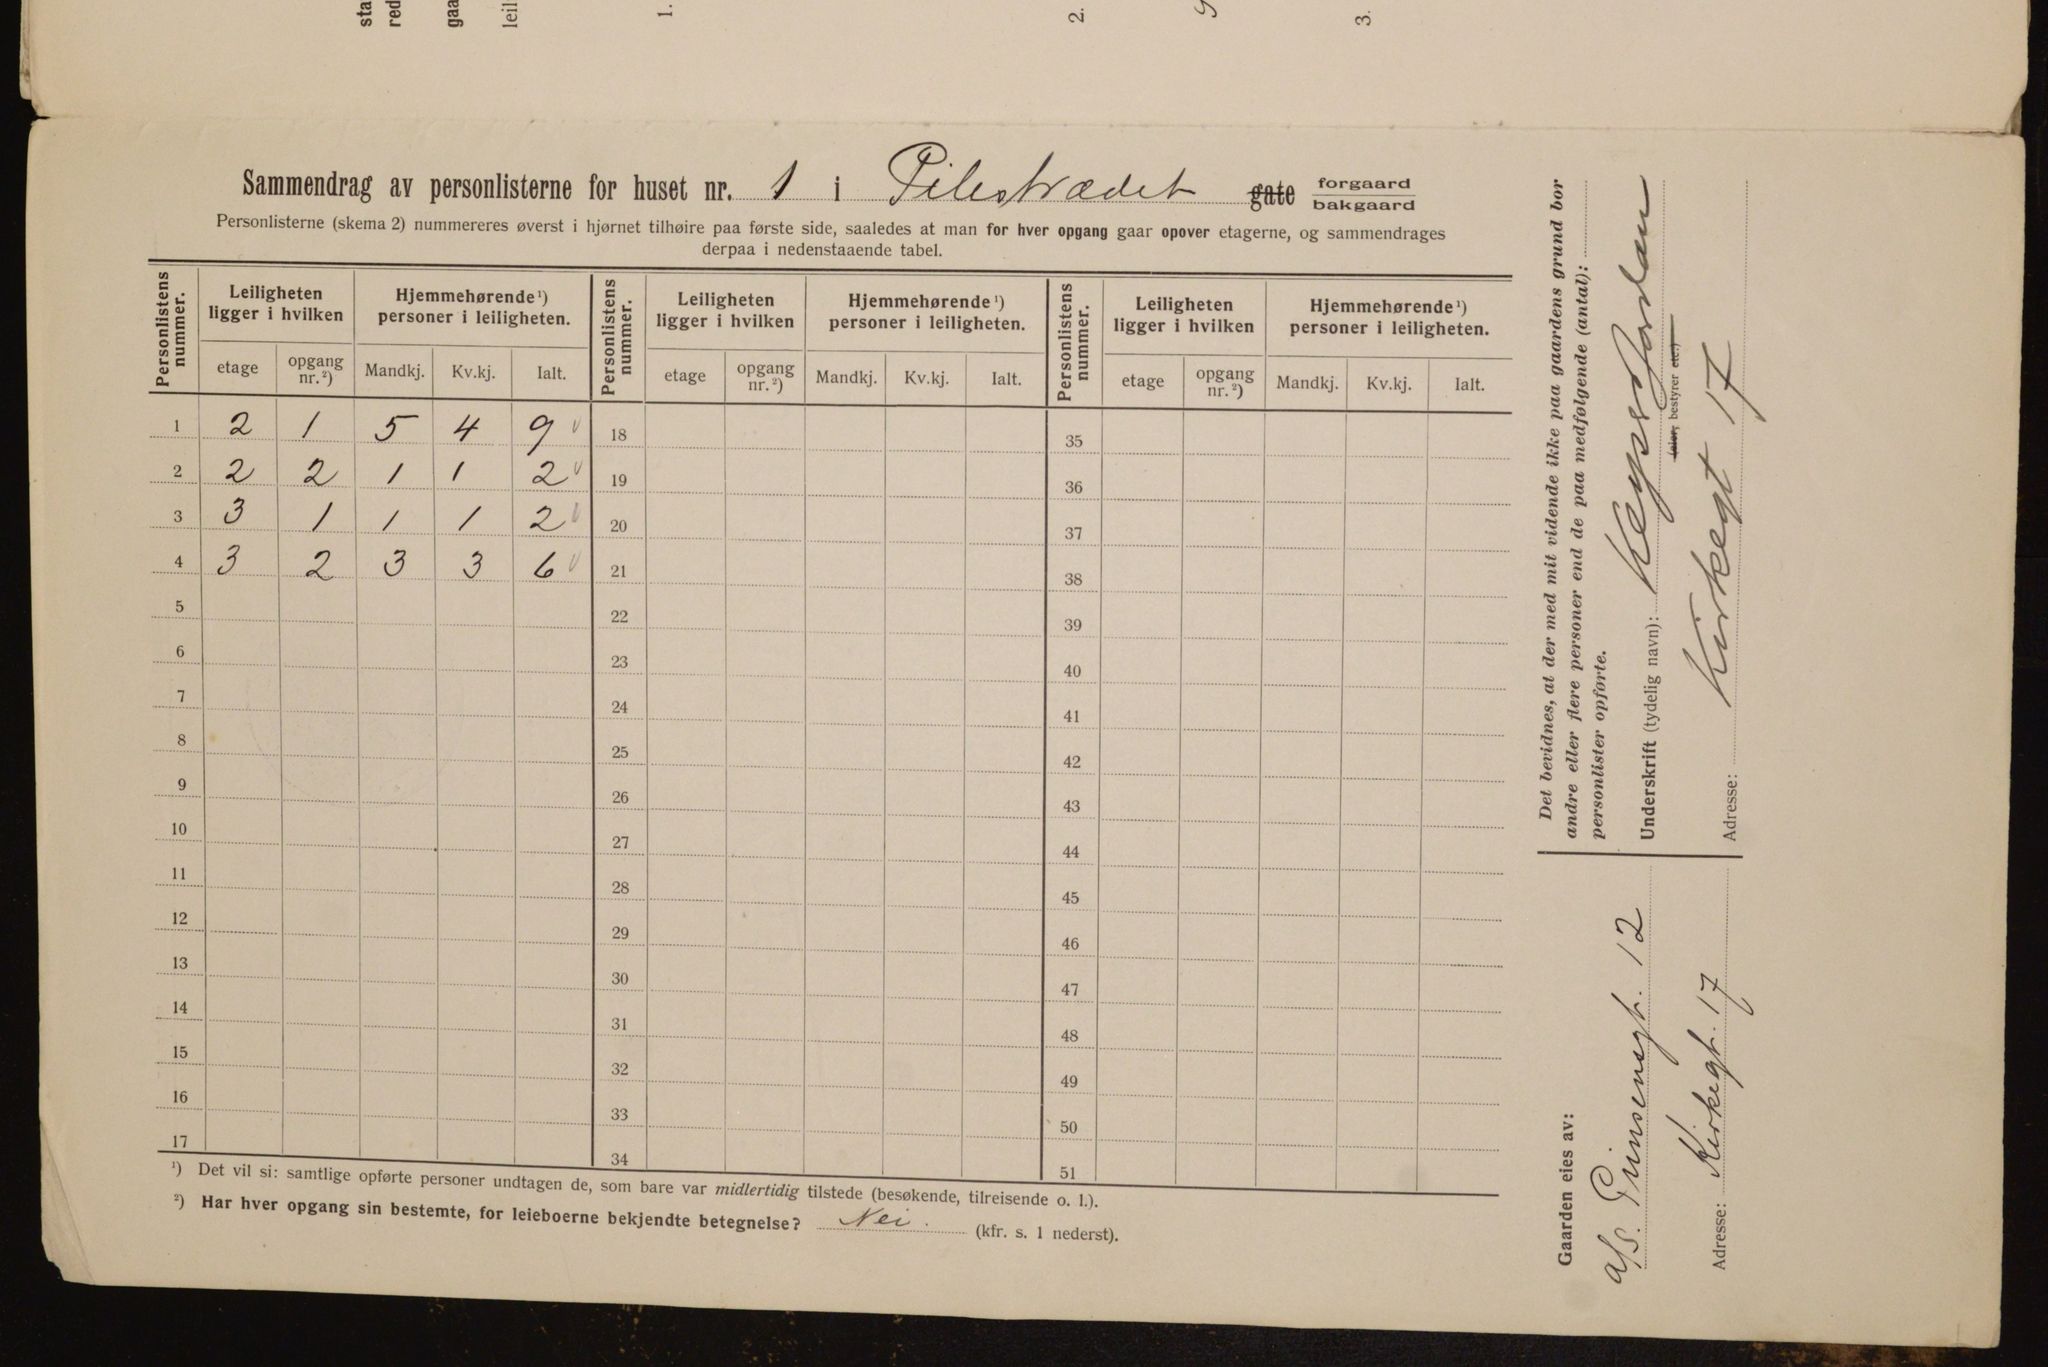 sta
red
gaa
leil
1.
2.
3.
Sammendrag av personlisterne for huset nr. 1 i Pilestrædet gate forgaard
bakgaard
Personlisterne (skema 2) nummereres øverst i hjørnet tilhøire paa første side, saaledes at man for hver opgang gaar opover etagerne, og sammendrages
derpaa i nedenstaaende tabel.
Personlistens nummer. Leiligheten ligger i hvilken Hjemmehørende¹) personer i leiligheten. Personlistens nummer. Leiligheten ligger i hvilken Hjemmehørende¹) personer i leiligheten. Personlistens nummer. Leiligheten ligger i hvilken Hjemmehørende¹) personer i leiligheten.
etage opgang nr.²) Mandkj. Kv.kj. Ialt. etage opgang nr.²) Mandkj. Kv.kj. Ialt. etage opgang nr.²) Mandkj. Kv.kj. Ialt.
1 2 1 5 4 9 18 35
2 2 2 1 1 2 19 36
3 3 1 1 1 2 20 37
4 3 2 3 3 6 21 38
5 22 39
6 23 40
7 24 41
8 25 42
9 26 43
10 27 44
11 28 45
12 29 46
13 30 47
14 31 48
15 32 49
16 33 50
17 34 51
¹) Det vil si: samtlige opførte personer undtagen de, som bare var midlertidig tilstede (besøkende, tilreisende o. l.).
²) Har hver opgang sin bestemte, for leieboerne bekjendte betegnelse? Nei. (kfr. s. 1 nederst).
Det bevidnes, at der med mit vidende ikke paa gaardens grund bor
andre eller flere personer end de paa medfølgende (antal):
personlister opførte.
Underskrift (tydelig navn):
(eier, bestyrer etc.)
Adresse: Kirkegt 17
Gaarden eies av:
a/s. Prinsensgt. 12
Adresse: Kirkegt. 17